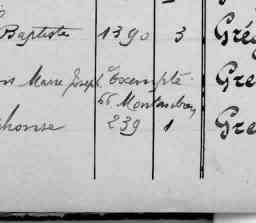 Baptiste 1390 3 Gré
Marie Joseph Exempté Gre
66 Montauban
phonse 239 1 Gre